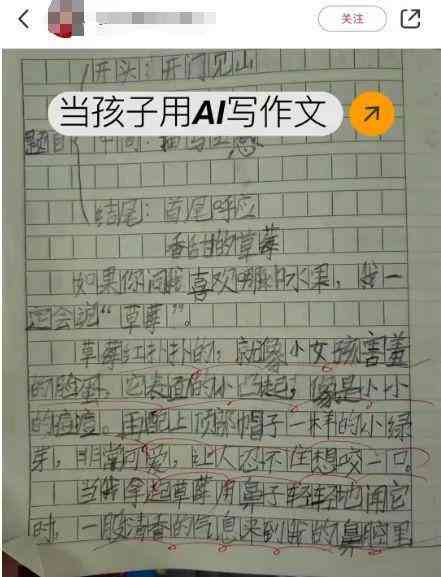 关注
开头：开门见山
当孩子用AI写作文
题目
中间：描写
结尾：首尾呼应
香甜的草莓
如果你问我喜欢哪种水果，我一
定会说“草莓”。
草莓红扑扑的，就像小女孩害羞
的脸蛋，它表面的小凸起，像是小小
的痘痘。再配上顶部帽子一样的小绿
芽，非常可爱，让人忍不住想咬一口。
当我拿起草莓用鼻子轻轻地闻它
时，一股清香的气息来到我的鼻腔里